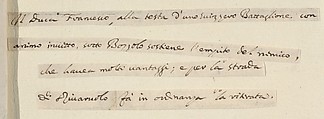 Il Duca Francesco, alla testa d'uno suizzero Battaglione, con
animo invitto, sotto Bozzolo sostiene l'empito del nemico,
che havea molti vantaggi; e per la strada
di Rivarolo fà in ordinanza la ritirata.